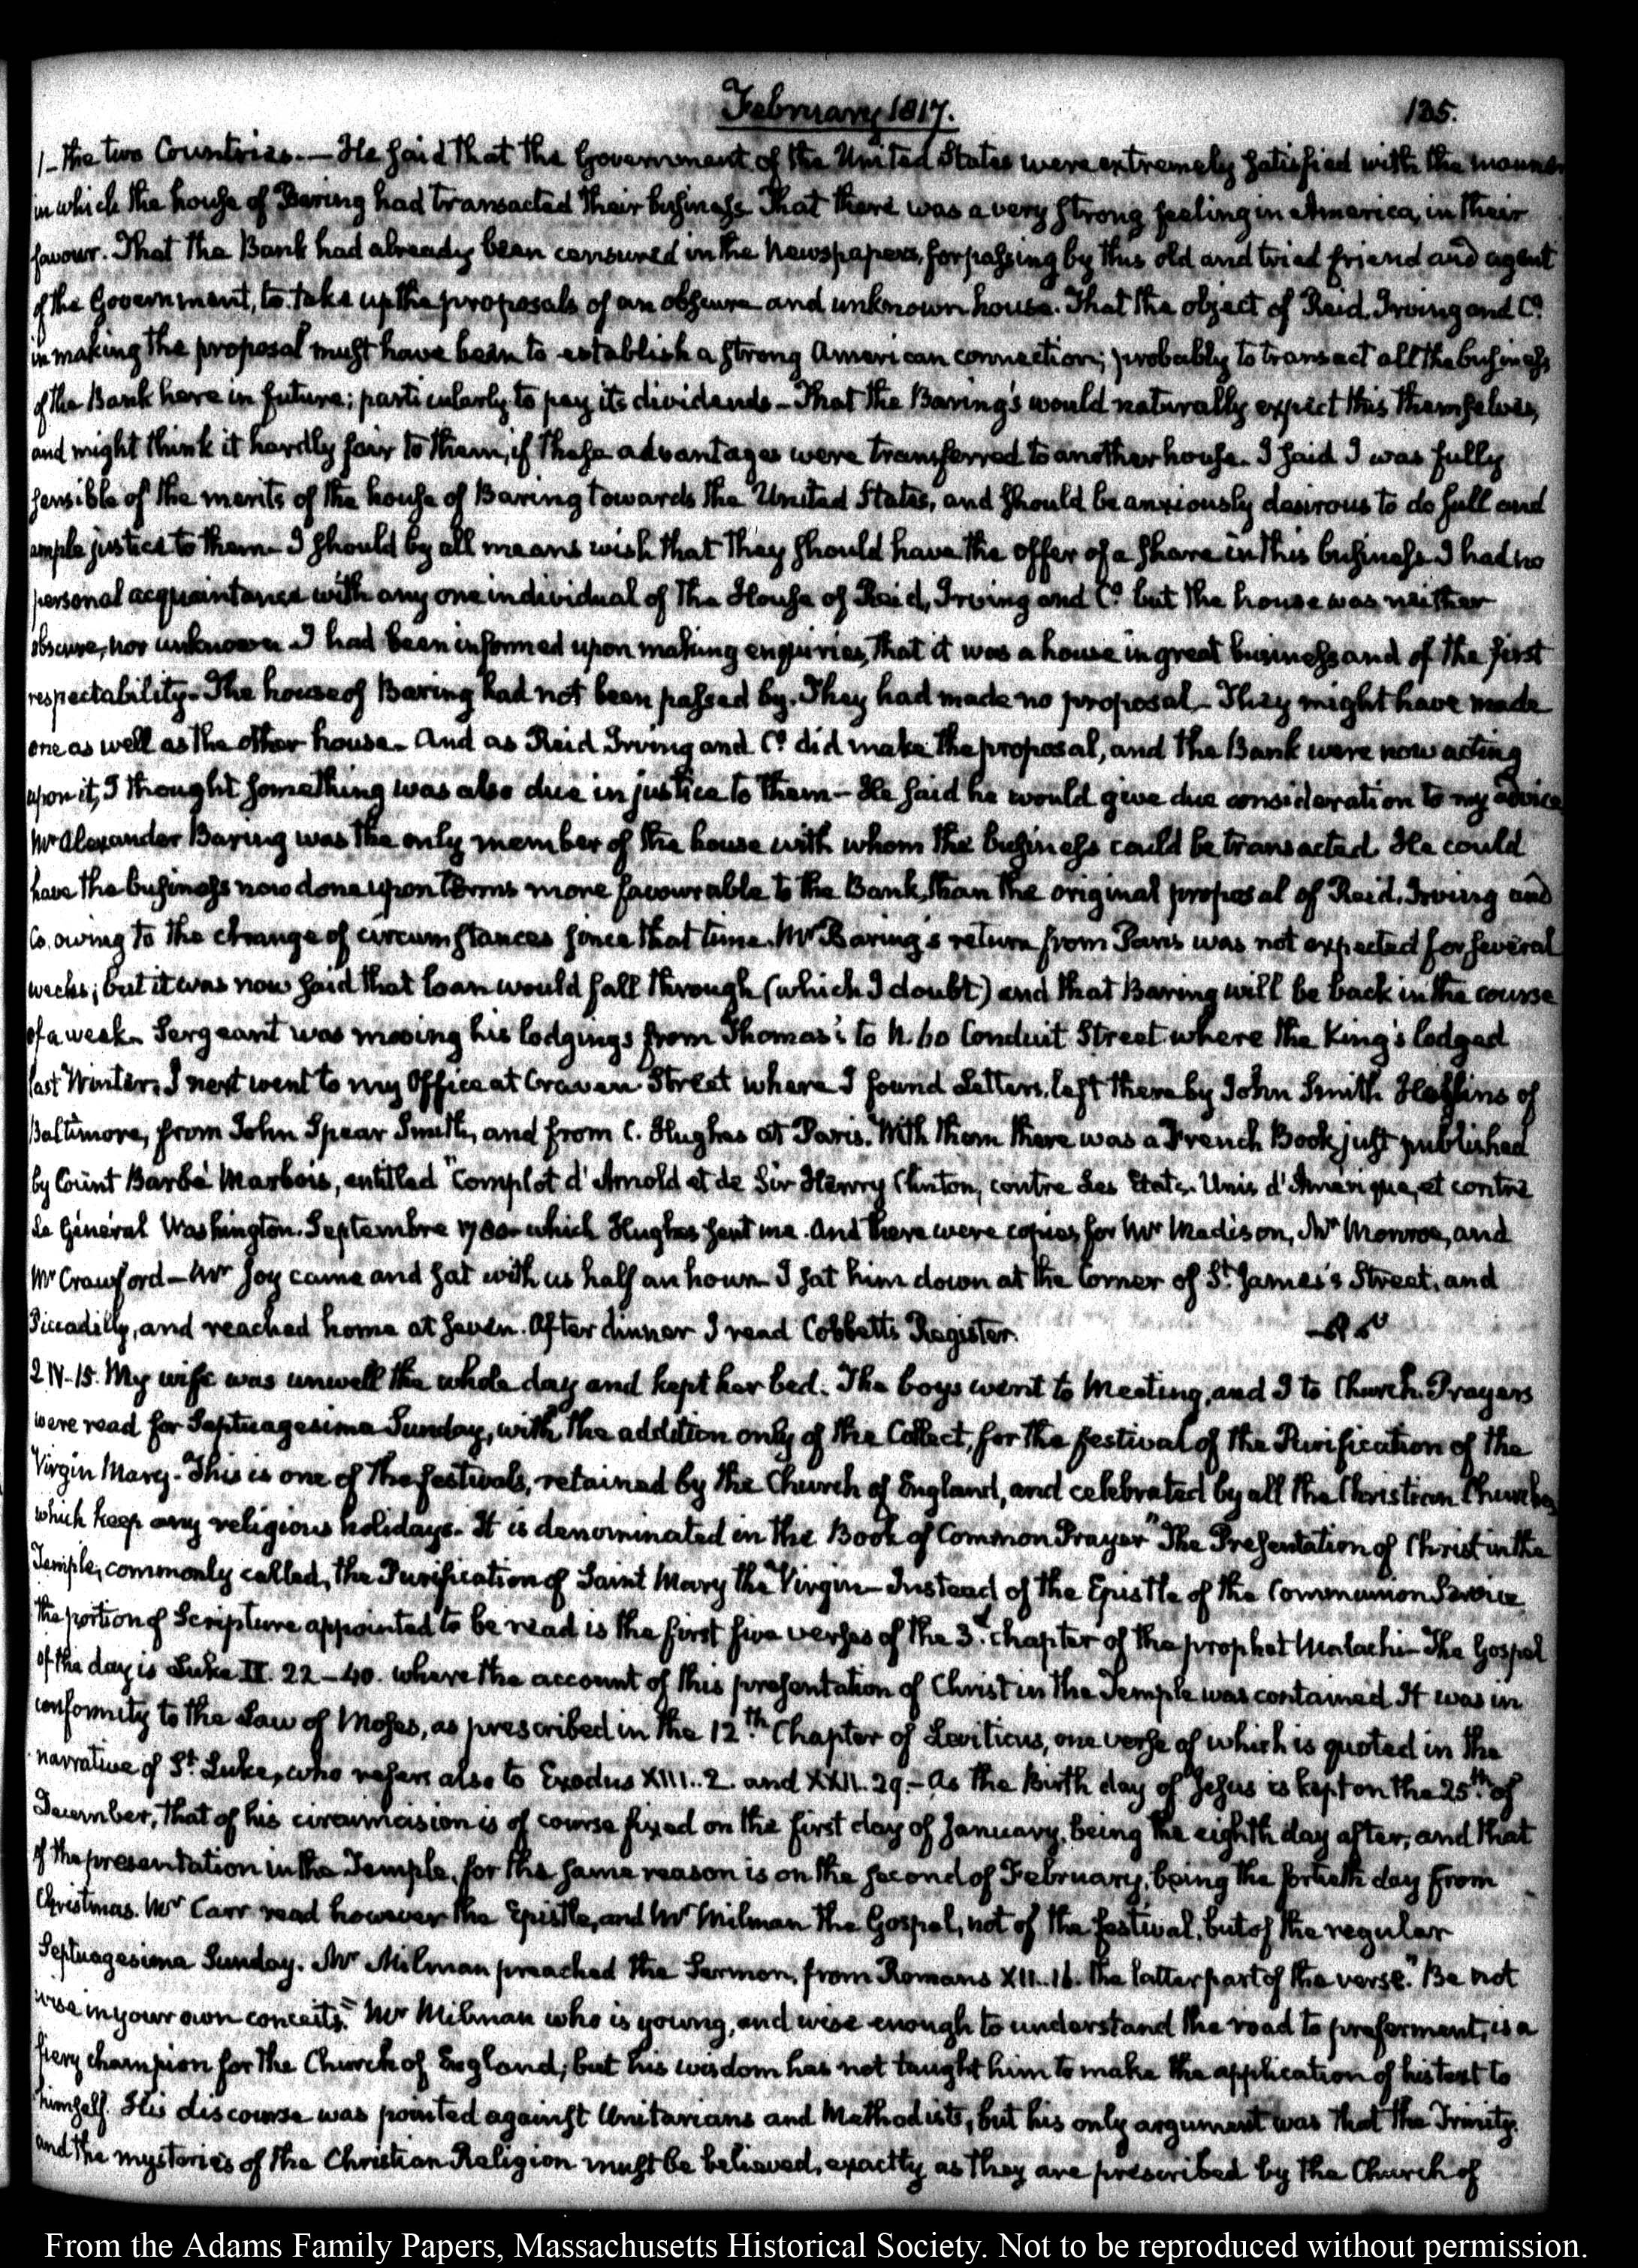 February 1817.
135.
1- the two Countries.— He said that the Government of the United States were extremely satisfied with the manner
in which the house of Baring had transacted their business That there was a very strong feeling in America, in their
favour. That the Bank had already been censured in the Newspapers, for passing by this old and tried friend and agent
of the Government, to take up the proposals of an obscure and unknown house. That the object of Reid, Irving and Co.
in making the proposal must have been to establish a strong American connection; probably to transact all the business
of the Bank here in future; particularly to pay its dividends – That the Baring's would naturally expect this themselves,
and might think it hardly fair to them, if these advantages were transferred to another house. I said I was fully
sensible of the merits of the house of Baring towards the United States, and should be anxiously desirous to do full and
ample justice to them – I should by all means wish that they should have the offer of a share in this business. I had no
personal acquaintance with any one individual of the House of Reid, Irving and Co. but the house was neither
obscure, nor unknown I had been informed upon making enquiries, that it was a house in great business and of the first
respectability. The house of Baring had not been passed by. They had made no proposal – They might have made
one as well as the other house. And as Reid Irving and Co. did make the proposal, and the Bank were now acting
upon it, I thought something was also due in justice to them – He said he would give due consideration to my advice
Mr Alexander Baring was the only member of the house with whom the business could be transacted. He could
have the business now done upon terms more favourable to the Bank, than the original proposal of Reid, Irving and
Co. owing to the change of circumstances since that time. Mr Baring's return from Paris was not expected for several
weeks; but it was now said that loan would fall through (which I doubt) and that Baring will be back in the course
of a week. Sergeant was moving his lodgings from Thomas's to N. 60 Conduit Street where the King's lodged
last Winter. I next went to my Office at Craven Street where I found Letters, left there by John Smith Hollins of
Baltimore, from John Spear Smith, and from C. Hughes at Paris. With them there was a French Book just published
by Count Barbé Marbois, entitled "Complot d'Arnold et de Sir Henry Clinton, contre Les Etats-Unis d'Amérique, et contre
Le Général Washington. Septembre 1780 – which Hughes sent me. And there were copies for Mr Madison, Mr Monroe, and
Mr Crawford – Mr Joy came and sat with us half an hour I sat him down at the Corner of St. James's Street, and
Piccadilly, and reached home at seven. After dinner I read Cobbett's Register.
2. IV-15. My wife was unwell the whole day and kept her bed. The boys went to Meeting, and I to Church. Prayers
were read for Septuagesima Sunday, with the addition only of the Collect, for the festival of the Purification of the
Virgin Mary. This is one of the festivals, retained by the Church of England, and celebrated by all the Christian Churches
which keep any religious holidays. It is denominated in the Book of Common Prayer "The Presentation of Christ in the
Temple, commonly called, the Purification of Saint Mary the Virgin – Instead of the Epistle of the Communion Service
the portion of Scripture appointed to be read is the first five verses of the 3d. chapter of the prophet Malachi – The Gospel
of the day is Luke II. 22-40. where the account of this presentation of Christ in the Temple was contained. It was in
conformity to the Law of Moses, as prescribed in the 12th. Chapter of Leviticus, one verse of which is quoted in the
narrative of St. Luke, who refers also to Exodus XIII..2. and XXII.29. – As the Birth day of Jesus is kept on the 25th. of
December, that of his circumcision is of course fixed on the first day of January, being the eighth day after; and that
of the presentation in the Temple, for the same reason is on the second of February, being the fortieth day from
Christmas. Mr Carr read however the Epistle, and Mr Milman the Gospel, not of the festival, but of the regular
Septuagesima Sunday. Mr Milman preached the Sermon, from Romans XII..16. the latter part of the verse. "Be not
wise in your own conceits." Mr Milman who is young, and wise enough to understand the road to preferment, is a
fiery champion for the Church of England; but his wisdom has not taught him to make the application of his text to
himself. His discourse was pointed against Unitarians and Methodists, but his only argument was that the Trinity,
and the mysteries of the Christian Religion must be believed, exactly as they are prescribed by the Church of
From the Adams Family Papers, Massachusetts Historical Society. Not to be reproduced without permission.